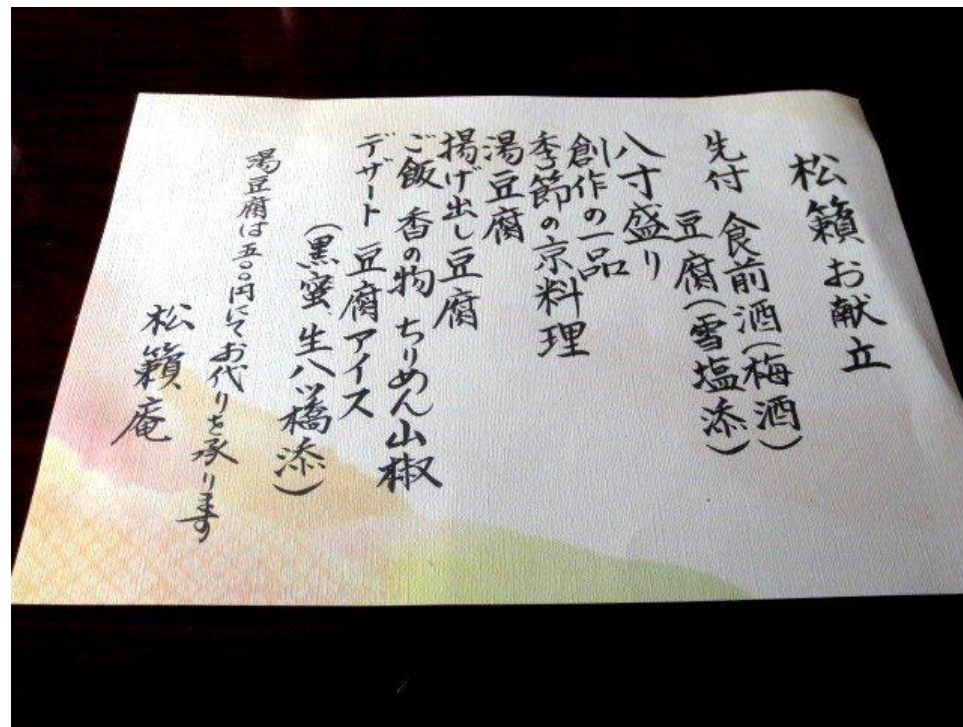 松籟お献立
先付 食前酒(梅酒)
豆腐(雪塩添)
八寸盛り
創作の一品
季節の京料理
湯豆腐
揚げ出し豆腐
ご飯 香の物 ちりめん山椒
デザート 豆腐アイス
(黒蜜、生八ッ橋添)
湯豆腐は五〇〇円にてお代りを承ります
松籟庵